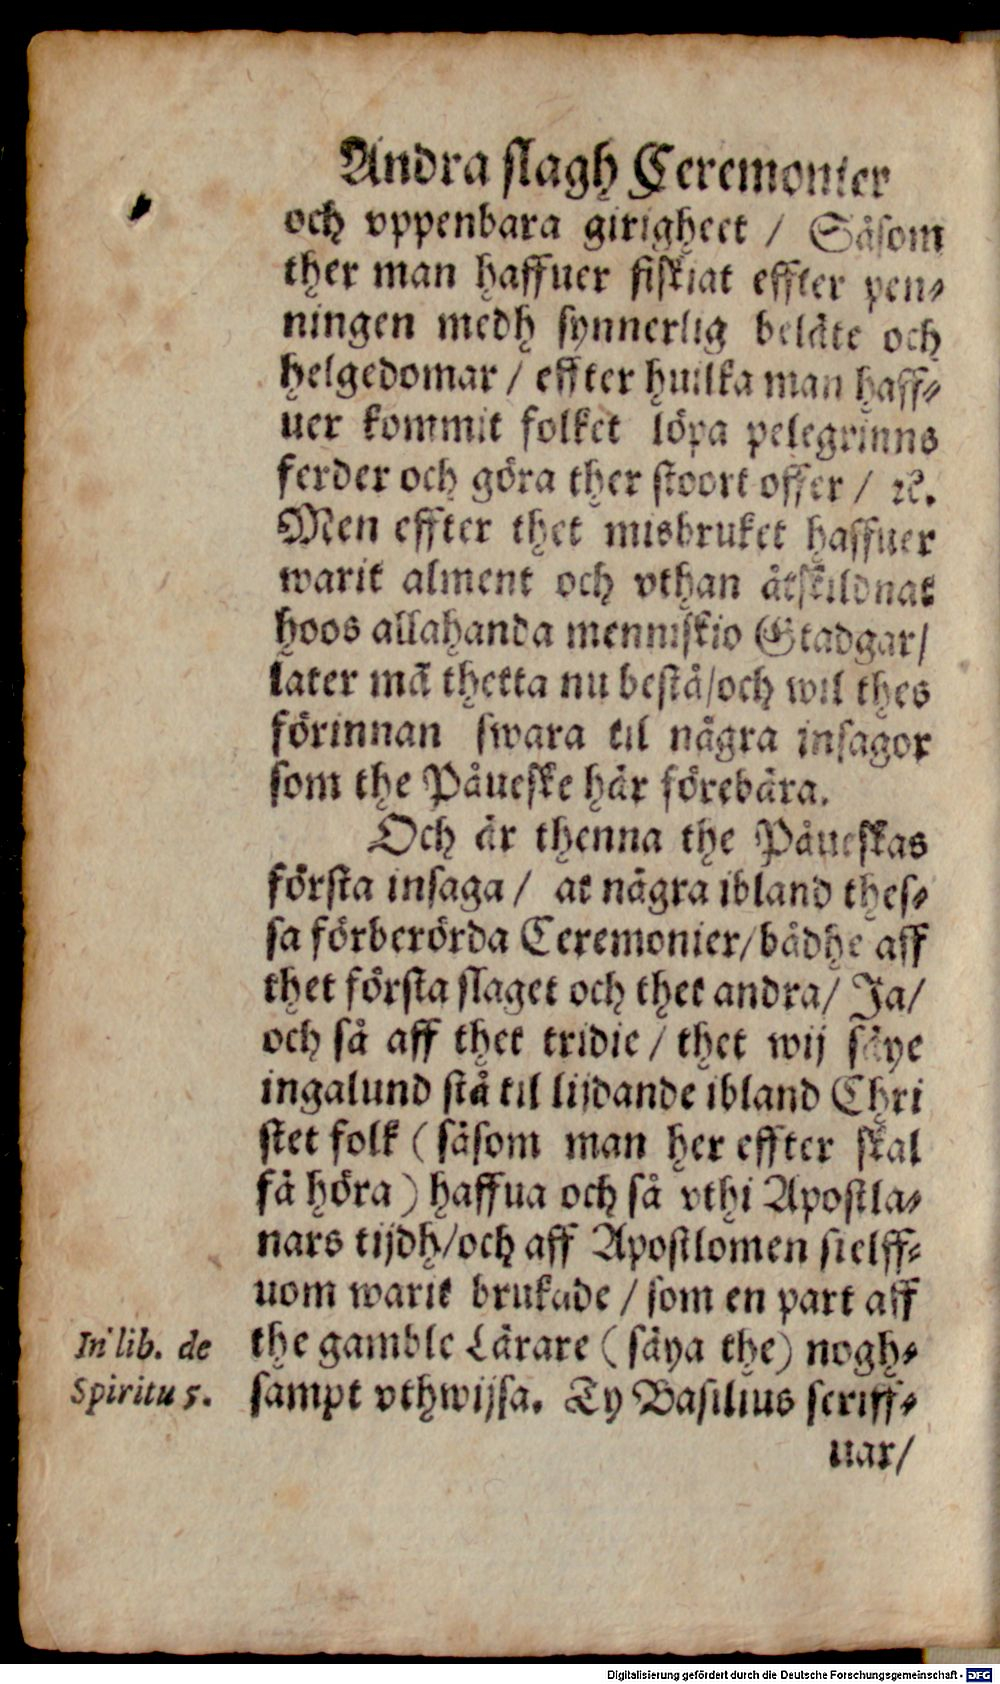 Andra slagh Ceremonier
och vppenbara girigheet / Såsom
ther man haffuer fiskiat effter pen-
ningen medh synnerlig beläte och
helgedomar / effter huilka man haff-
uer kommit folket löpa pelegrinns
ferder och göra ther stoort offer / ꝛc.
Men effter thet misbruket haffuer
warit alment och vthan åtskildnat
hoos allahanda menniskio Stadgar/
later mā thetta nu bestå/och wil thes
förinnan swara til några insagor
som the Påueske här förebära.
Och är thenna the Påueskas
första insaga / at några ibland thes-
sa förberörda Ceremonier/bådhe aff
thet första slaget och thet andra/ Ja/
och så aff thet tridie / thet wij säye
ingalund stå til lijdande ibland Chri
stet folk (såsom man her effter skal
få höra) haffua och så vthi Apostla-
nars tijdh/och aff Apostlomen sielff-
uom warit brukade / som en part aff
the gamble Lärare (säya the) nogh-
In lib. de
Spiritu 5.
sampt vthwijsa. Ty Basilius scriff-
uar/
Digitalisierung gefördert durch die Deutsche Forschungsgemeinschaft - DFG